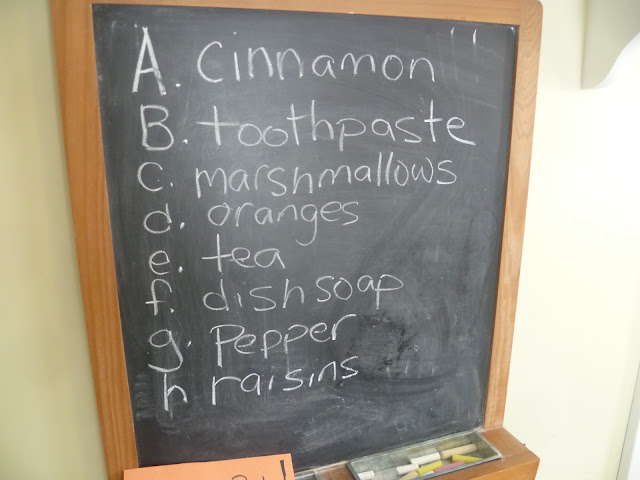 A. cinnamon
B. toothpaste
c. marshmallows
d. oranges
e. tea
f. dish soap
g. pepper
h raisins